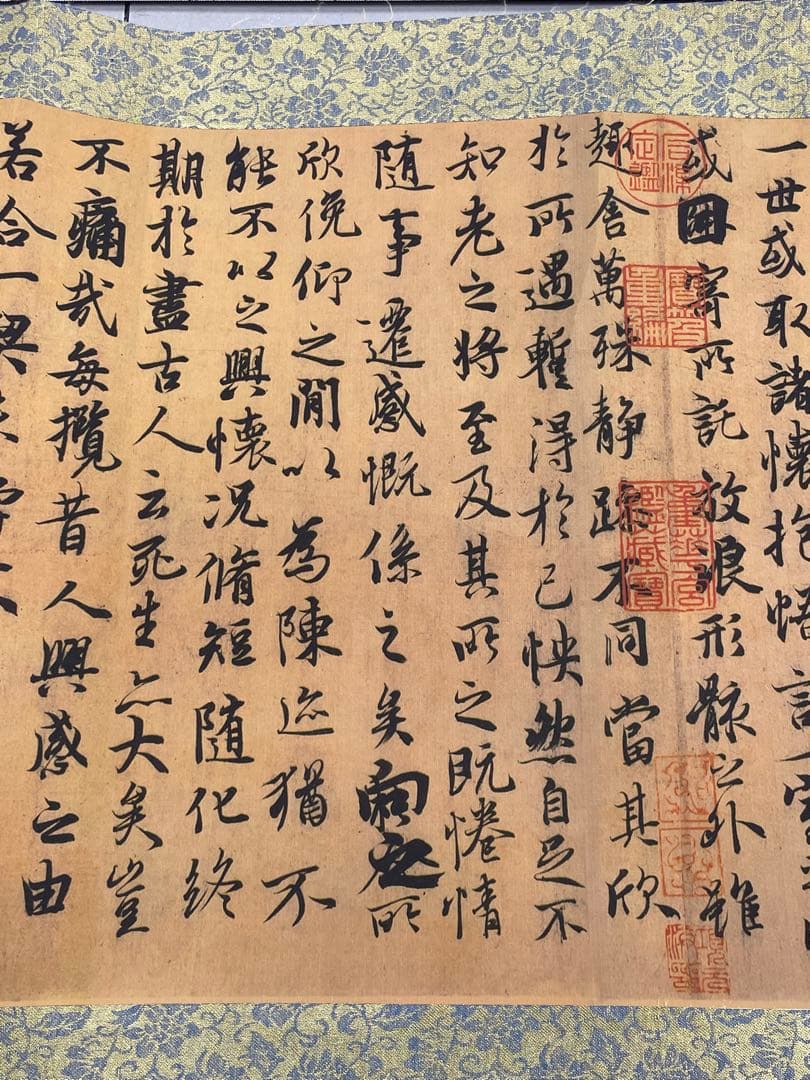 一世或取諸懷抱悟言一室
或因寄所託放浪形骸之外雖
趣舍萬殊静躁不同當其欣
於所遇暫得於己怏然自足不
知老之將至及其所之既惓情
随事遷感慨係之矣向之所
欣俛仰之閒以為陳迹猶不
能不以之興懷况脩短随化終
期於盡古人云死生亦大矣豈
不痛哉每攬昔人興感之由
若合一契未嘗不
石渠定鑑
寶笈重編
重華宮鑑藏寶